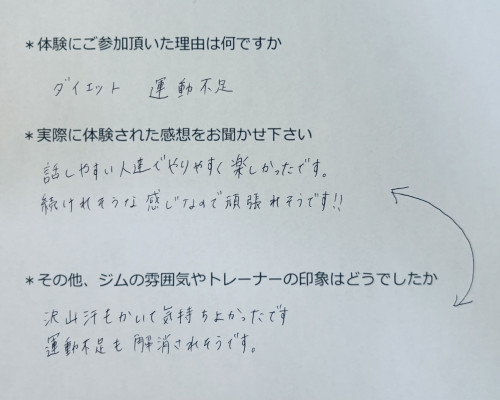 *体験にご参加頂いた理由は何ですか
ダイエット 運動不足
*実際に体験された感想をお聞かせ下さい
話しやすい人達でやりやすく楽しかったです。
続けれそうな感じなので頑張れそうです!!
*その他、ジムの雰囲気やトレーナーの印象はどうでしたか
沢山汗もかいて気持ちよかったです
運動不足も解消されそうです。